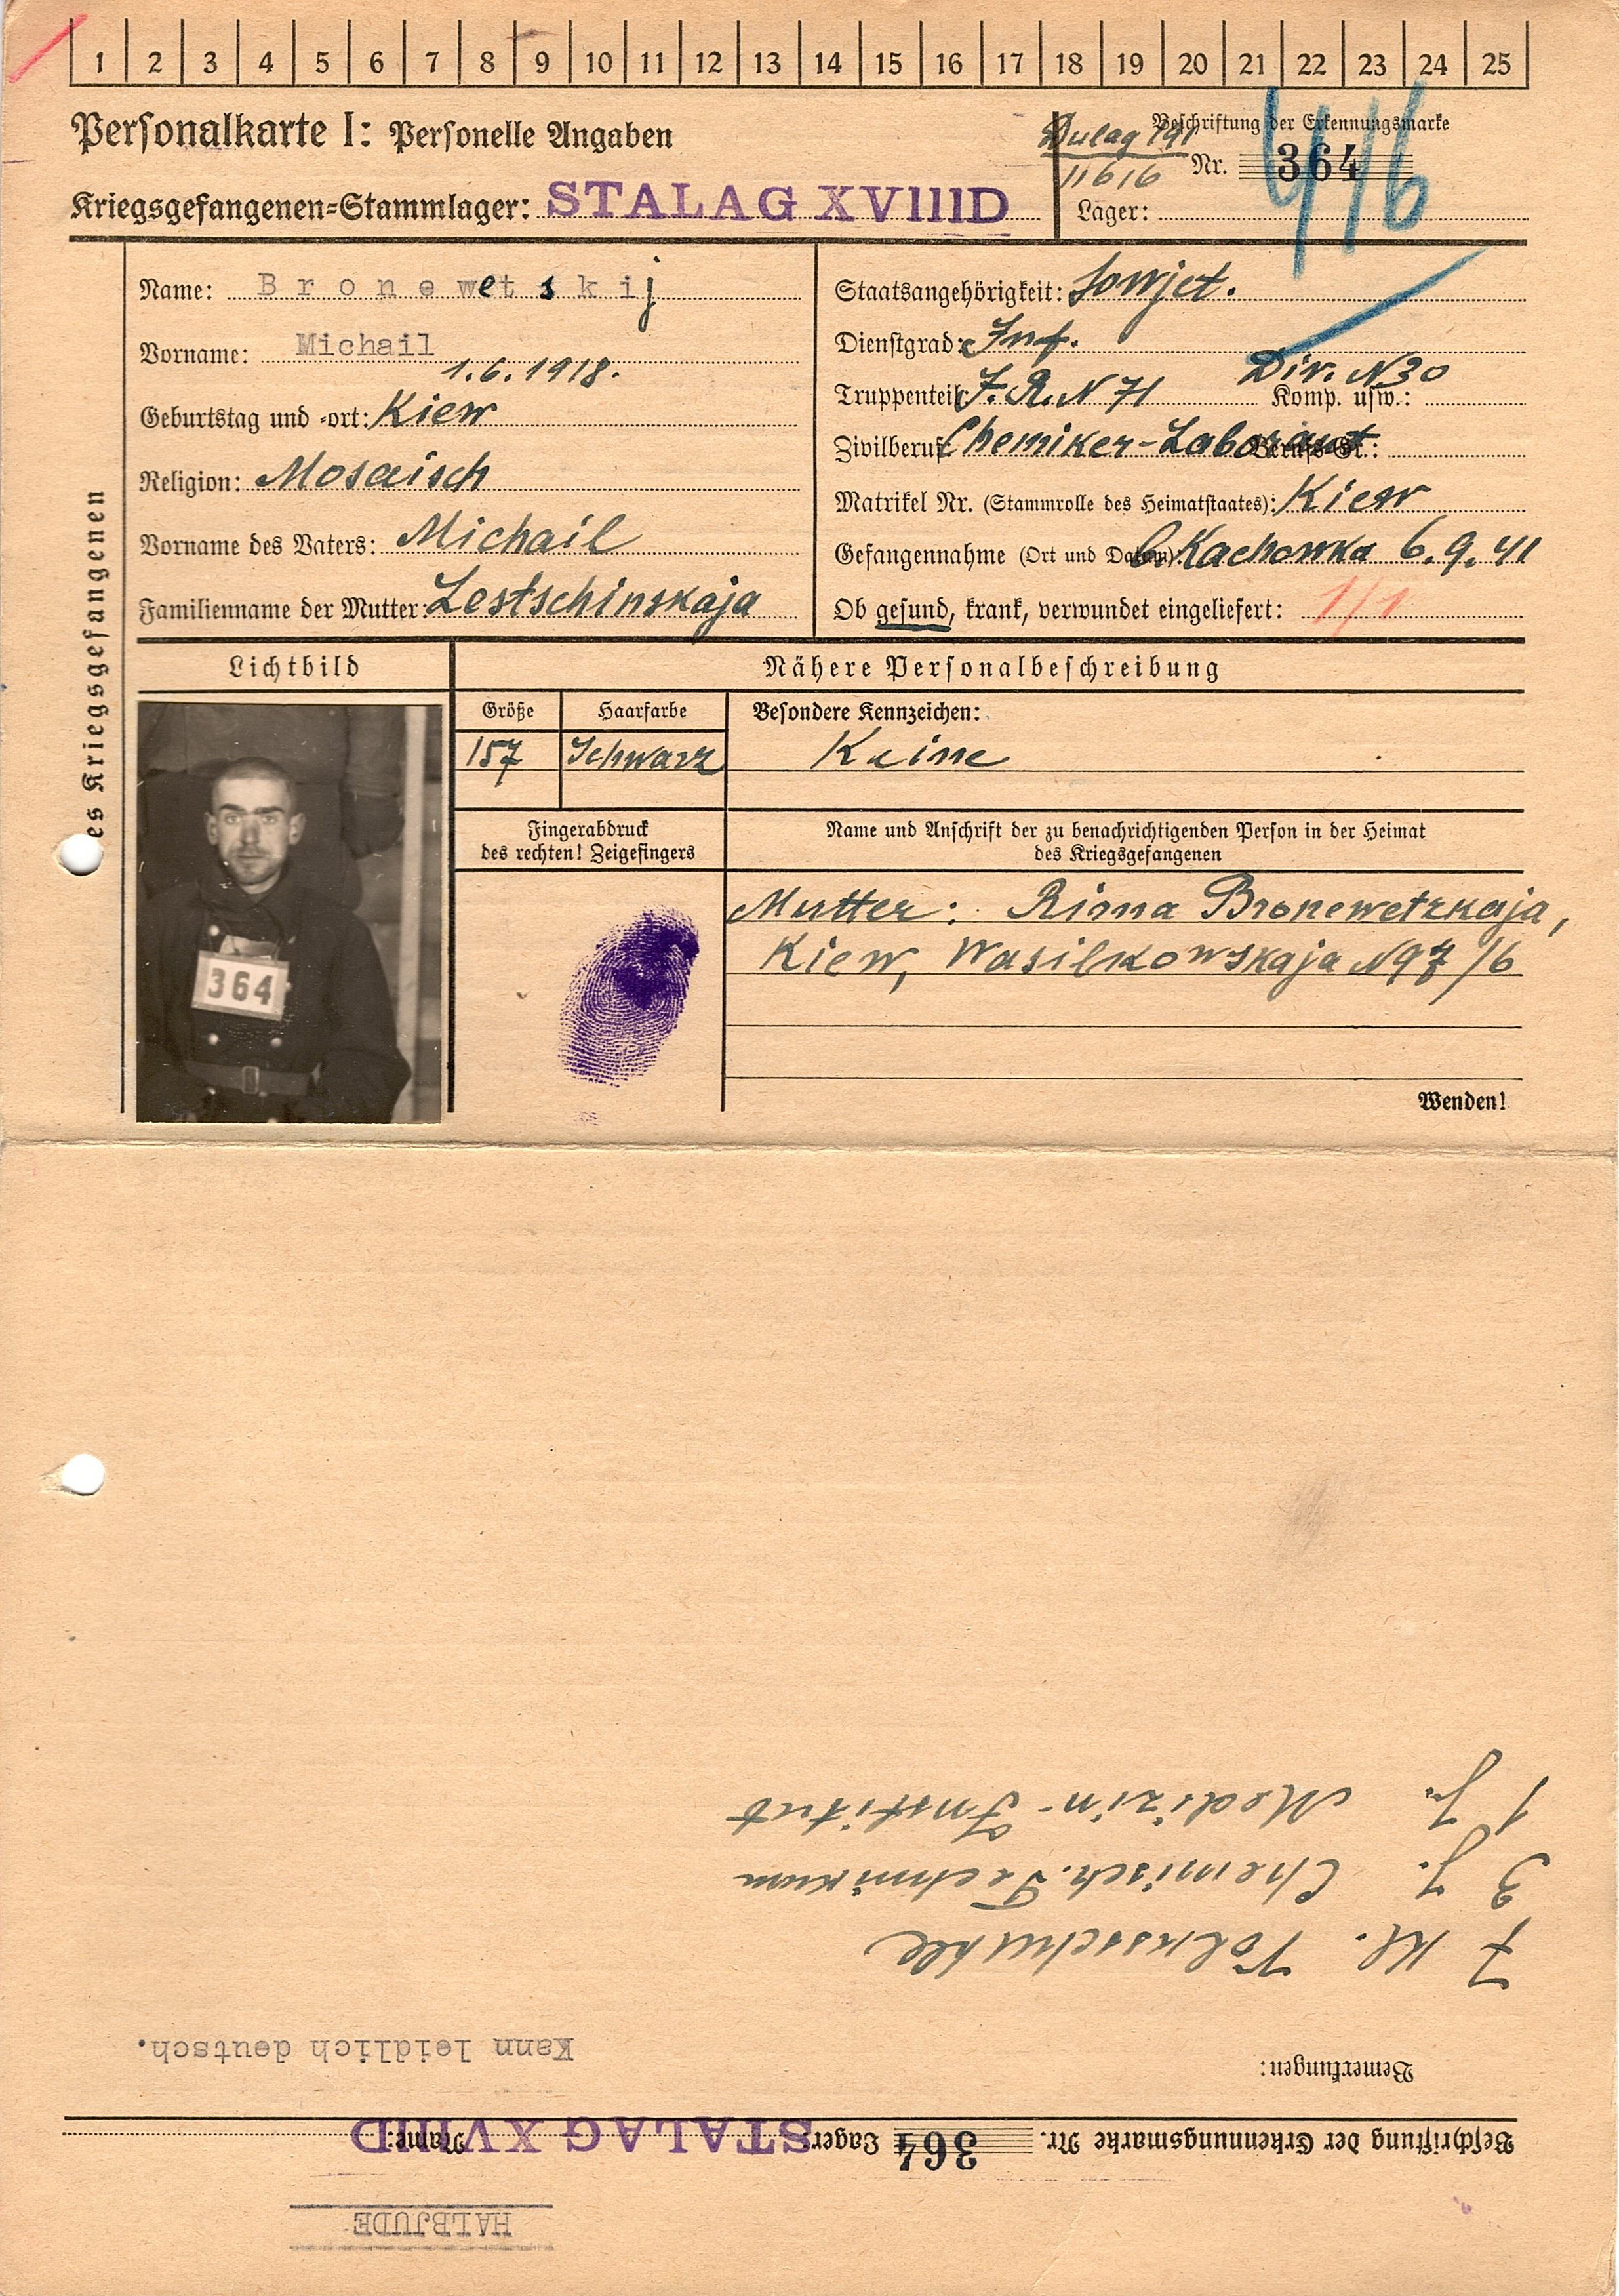 1 2 3 4 5 6 7 8 9 10 11 12 13 14 15 16 17 18 19 20 21 22 23 24 25
Personalkarte I: Personelle Angaben
Kriegsgefangenen-Stammlager: STALAG XVIIID
Dulag 191
11616
Beschriftung der Erkennungsmarke
Nr. 364
Lager:
es Kriegsgefangenen
Name: Bronewetskij
Vorname: Michail
1.6.1918.
Geburtstag und -ort: Kiew
Religion: Mosaisch
Vorname des Vaters: Michail
Familienname der Mutter: Lestschinskaja
Staatsangehörigkeit: Sowjet.
Dienstgrad: Inf.
Div. N30
Truppenteil: J.R. N 71 Komp. usw.:
Zivilberuf: Chemiker-Laborant Berufs-Gr.:
Matrikel Nr. (Stammrolle des Heimatstaates): Kiew
Gefangennahme (Ort und Datum): b. Kachowka 6.9.41
Ob gesund, krank, verwundet eingeliefert: 1/1
Lichtbild
364
Nähere Personalbeschreibung
Größe Haarfarbe Besondere Kennzeichen:
157 Schwarz Keine
Fingerabdruck
des rechten! Zeigefingers
Name und Anschrift der zu benachrichtigenden Person in der Heimat
des Kriegsgefangenen
Mutter: Rima Bronewetzkaja,
Kiew, Wasilkowskaja N97/6
Wenden!
HALBJUDE
Beschriftung der Erkennungsmarke Nr. 364 Lager: STALAG XVIIID Name:
Bemerkungen:
Kann leidlich deutsch.
7 Kl. Volksschuhle
3 J. Chemisch. Technikum
1 J. Medizin-Institut